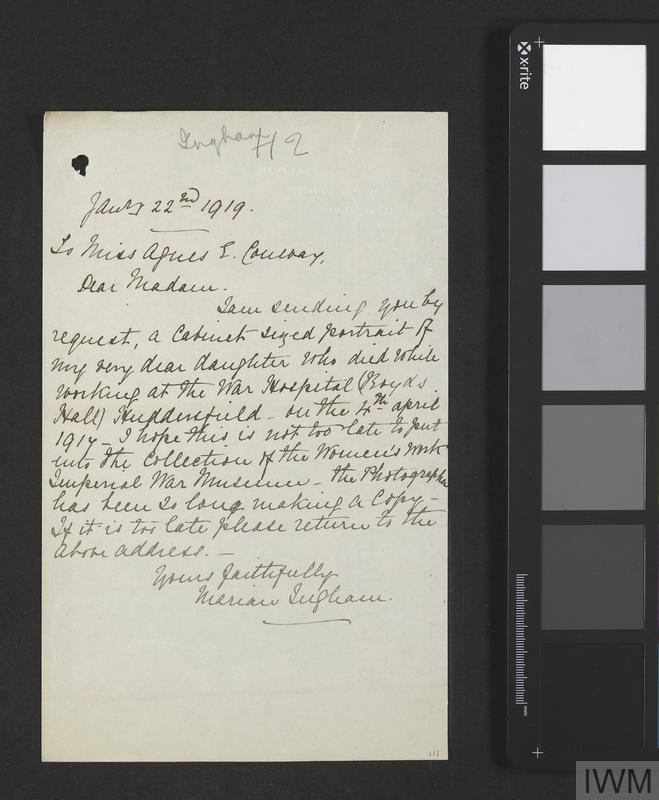 Ingham H2
Jany 22nd 1919.
To Miss Agnes E. Conway,
Dear Madam.
I am sending you by
request, a Cabinet sized portrait of
my very dear daughter who died while
working at the War Hospital (Royds
Hall) Huddersfield - on the 4th april
1917 - I hope this is not too late to put
into the Collection of the Women's Work
Imperial War Museum - the Photographer
has been so long making a Copy -
If it is too late please return to the
above address. -
Yours faithfully
Marian Ingham.
x-rite
mm
IWM